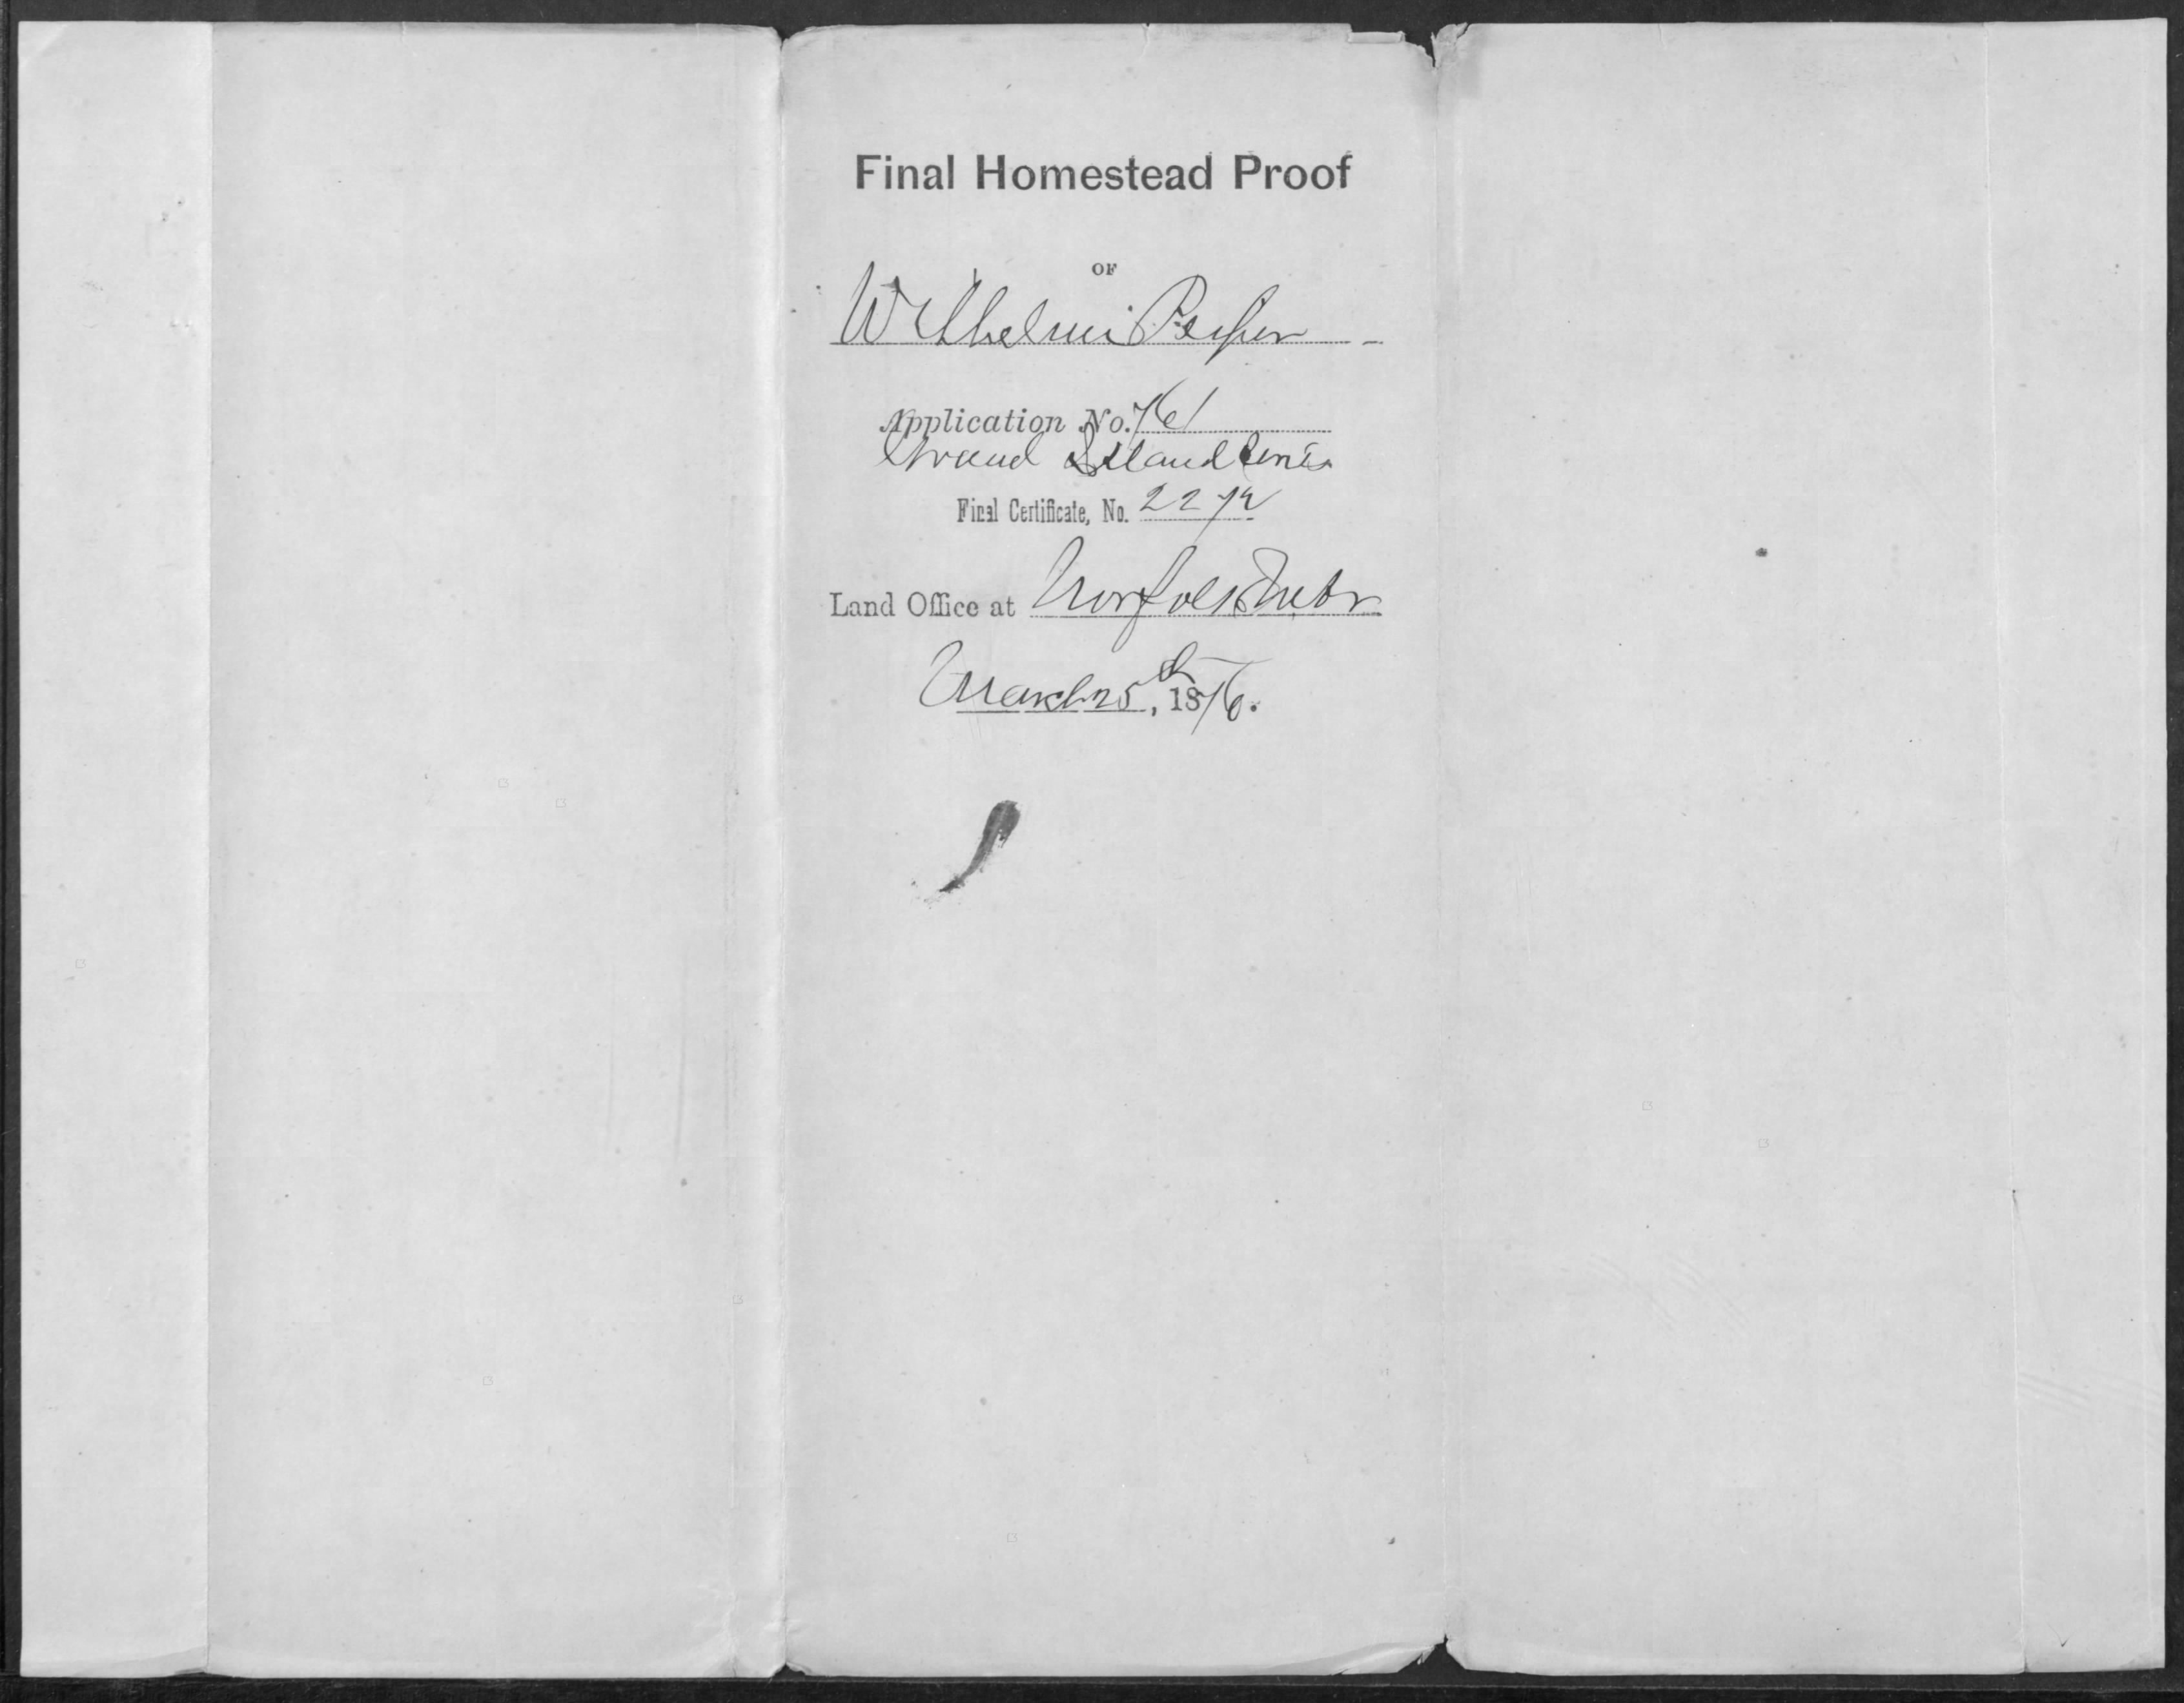 Final Homestead Proof
OF
Wilhelm
Application No. 761
Grand Island Series
Final Certificate, No. 2272
Land Office at Norfolk Nebr
March 25th, 1876.